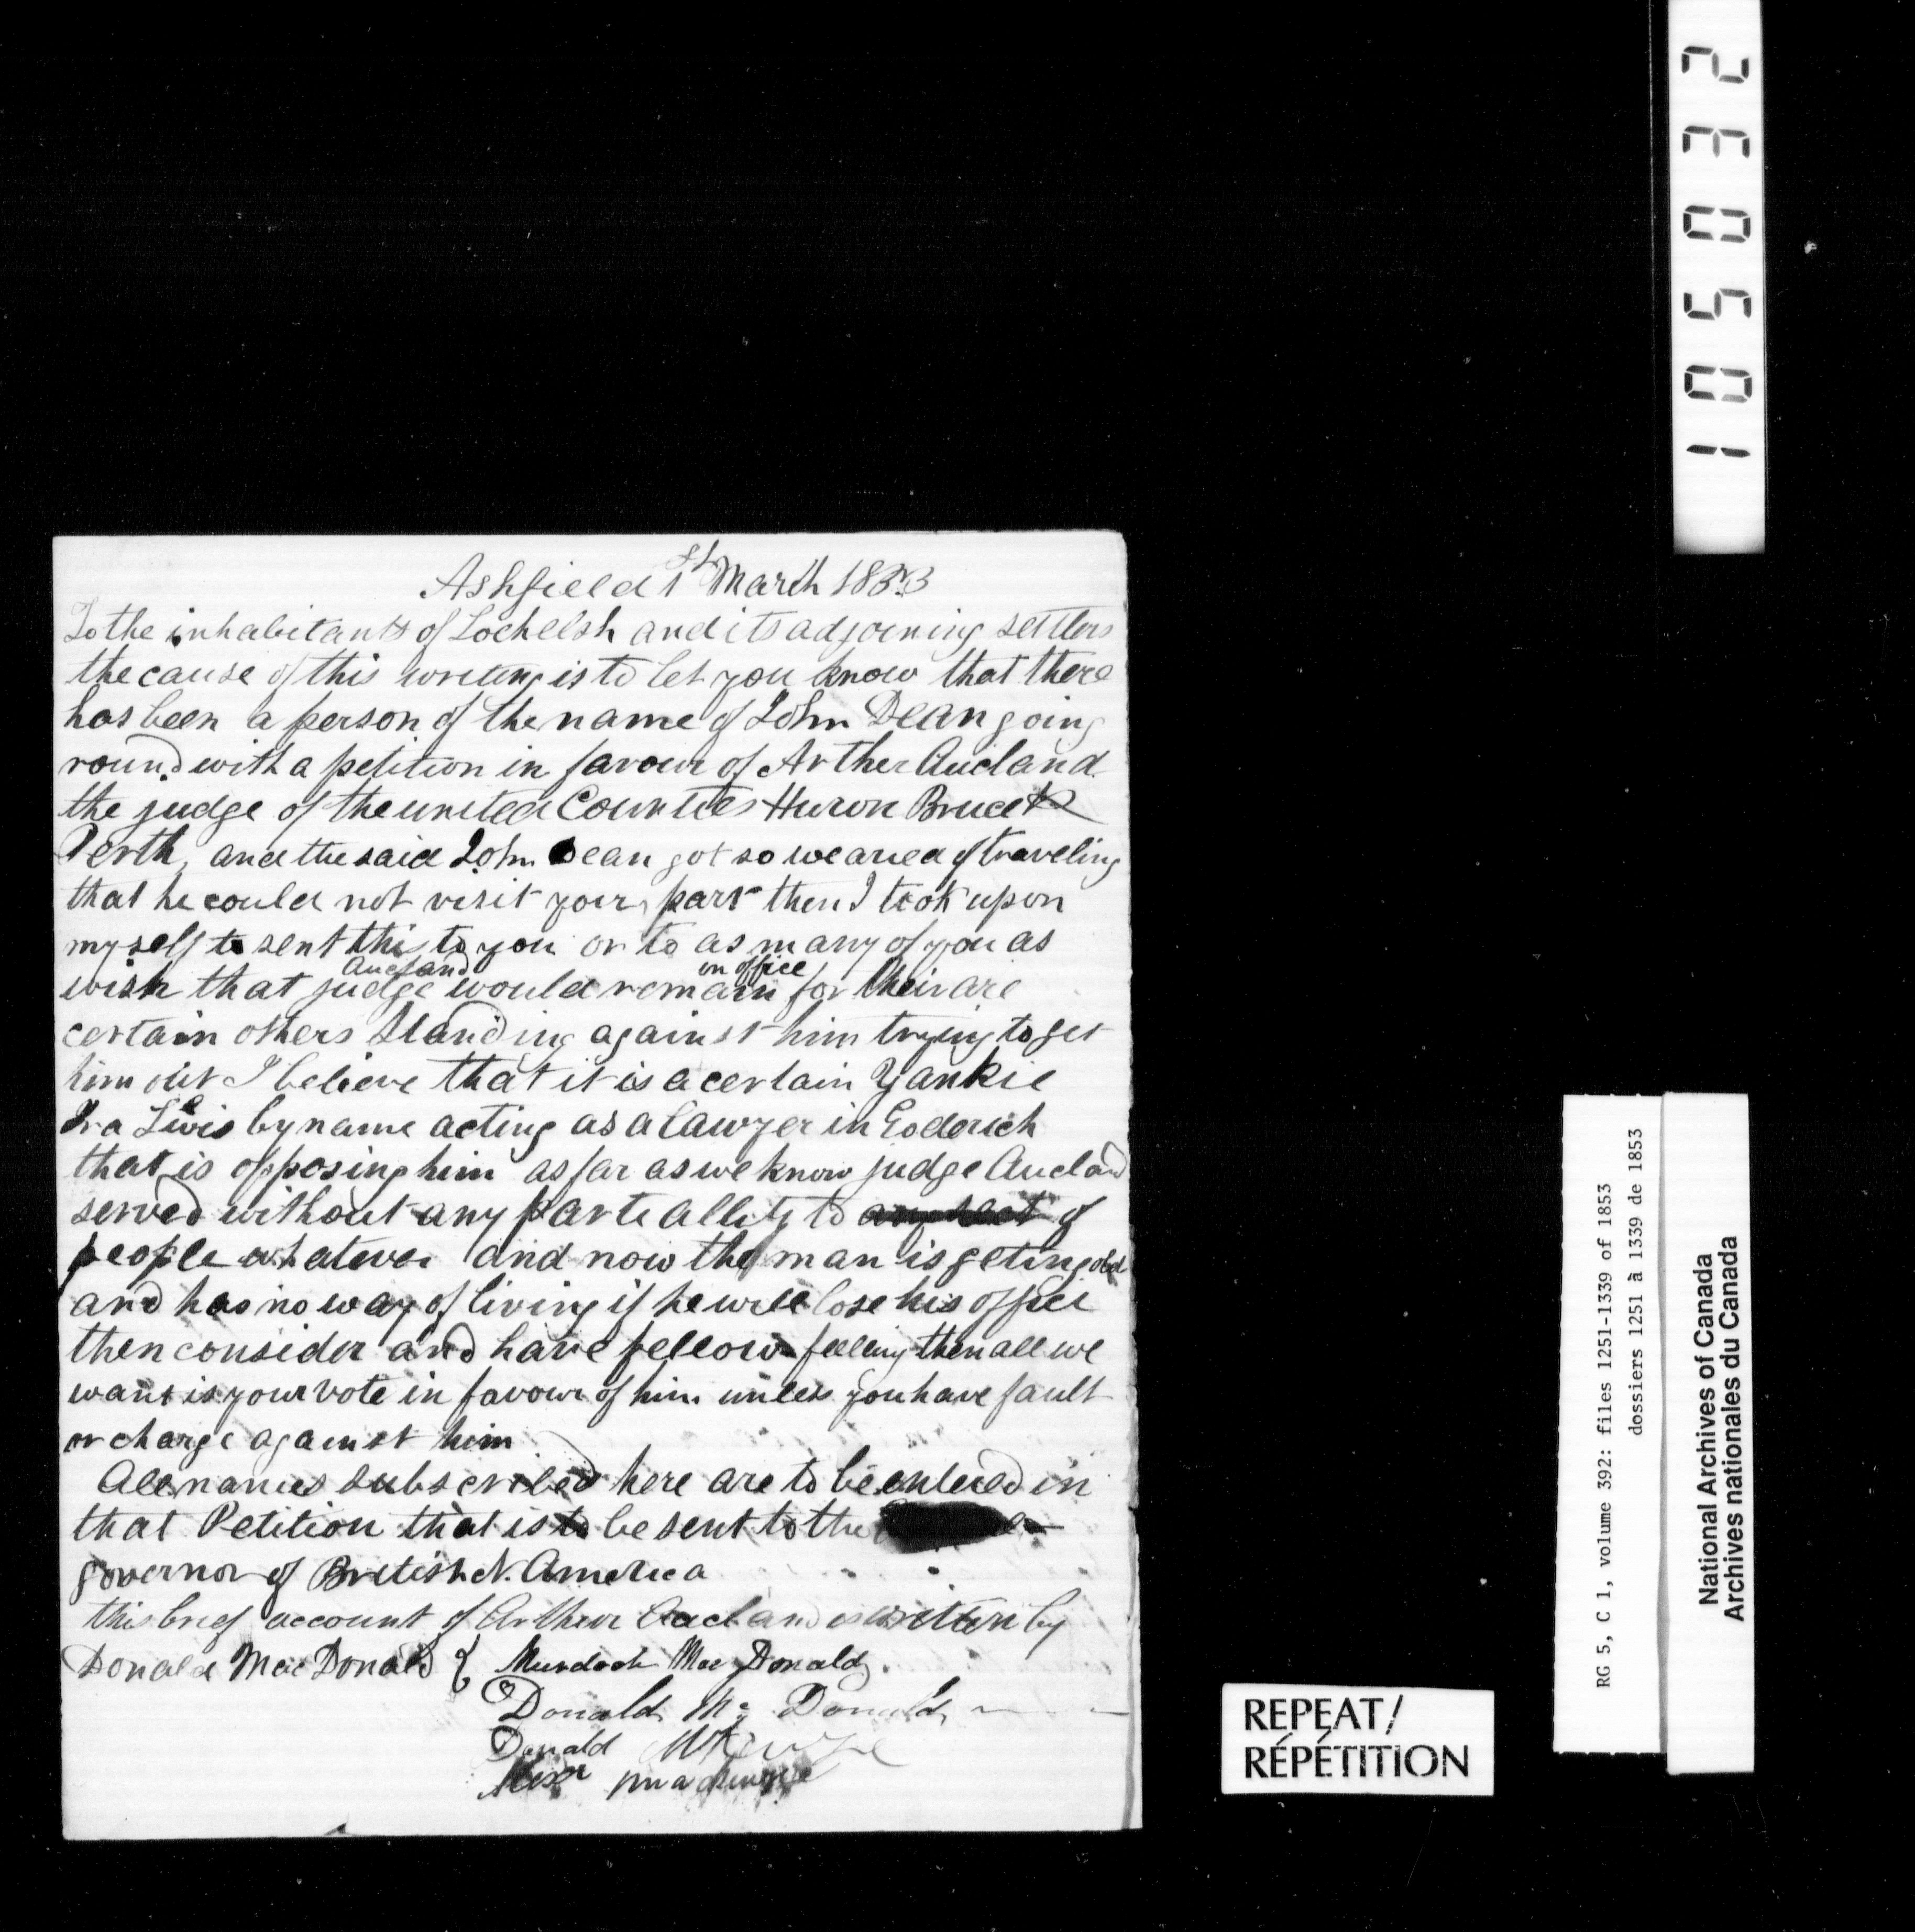 Ashfield 1st March 1853
To the inhabitants of Lochelsh and its adjoining settlers
the cause of this writing is to let you know that there
has been a person of the name of John Dean going
round with a petition in favour of Arther Aucland
the judge of the united Counties Huron Bruce &
Perth, and the said John Dean got so wearied of traveling
that he could not visit your part then I took upon
myself to sent this to you or to as many of you as
wish that judge Aucland would remain in office for their are
certain others standing against him trying to get
him out I believe that it is a certain Yankie
Ira Lewis by name acting as a lawyer in Goderich
that is opposing him as far as we know judge Aucland
served without any parteallity to any sect of
people whatever and now the man is geting old
and has no way of living if he will lose his offici
then consider and have fellow feelling then all we
want is your vote in favour of him unless you have fault
or charge against him
All names subscribed here are to be entered in
that Petition that is to be sent to the
governor of British N. America
this brief account of Arthur Aucland is written by
Donald MacDonald { Murdoch MacDonald.
Donald Mc Donald
Donald
Alexr
REPEAT/
RÉPÉTITION
RG 5, C 1, volume 392: files 1251-1339 of 1853
dossiers 1251 à 1339 de 1853
National Archives of Canada
Archives nationales du Canada
105032